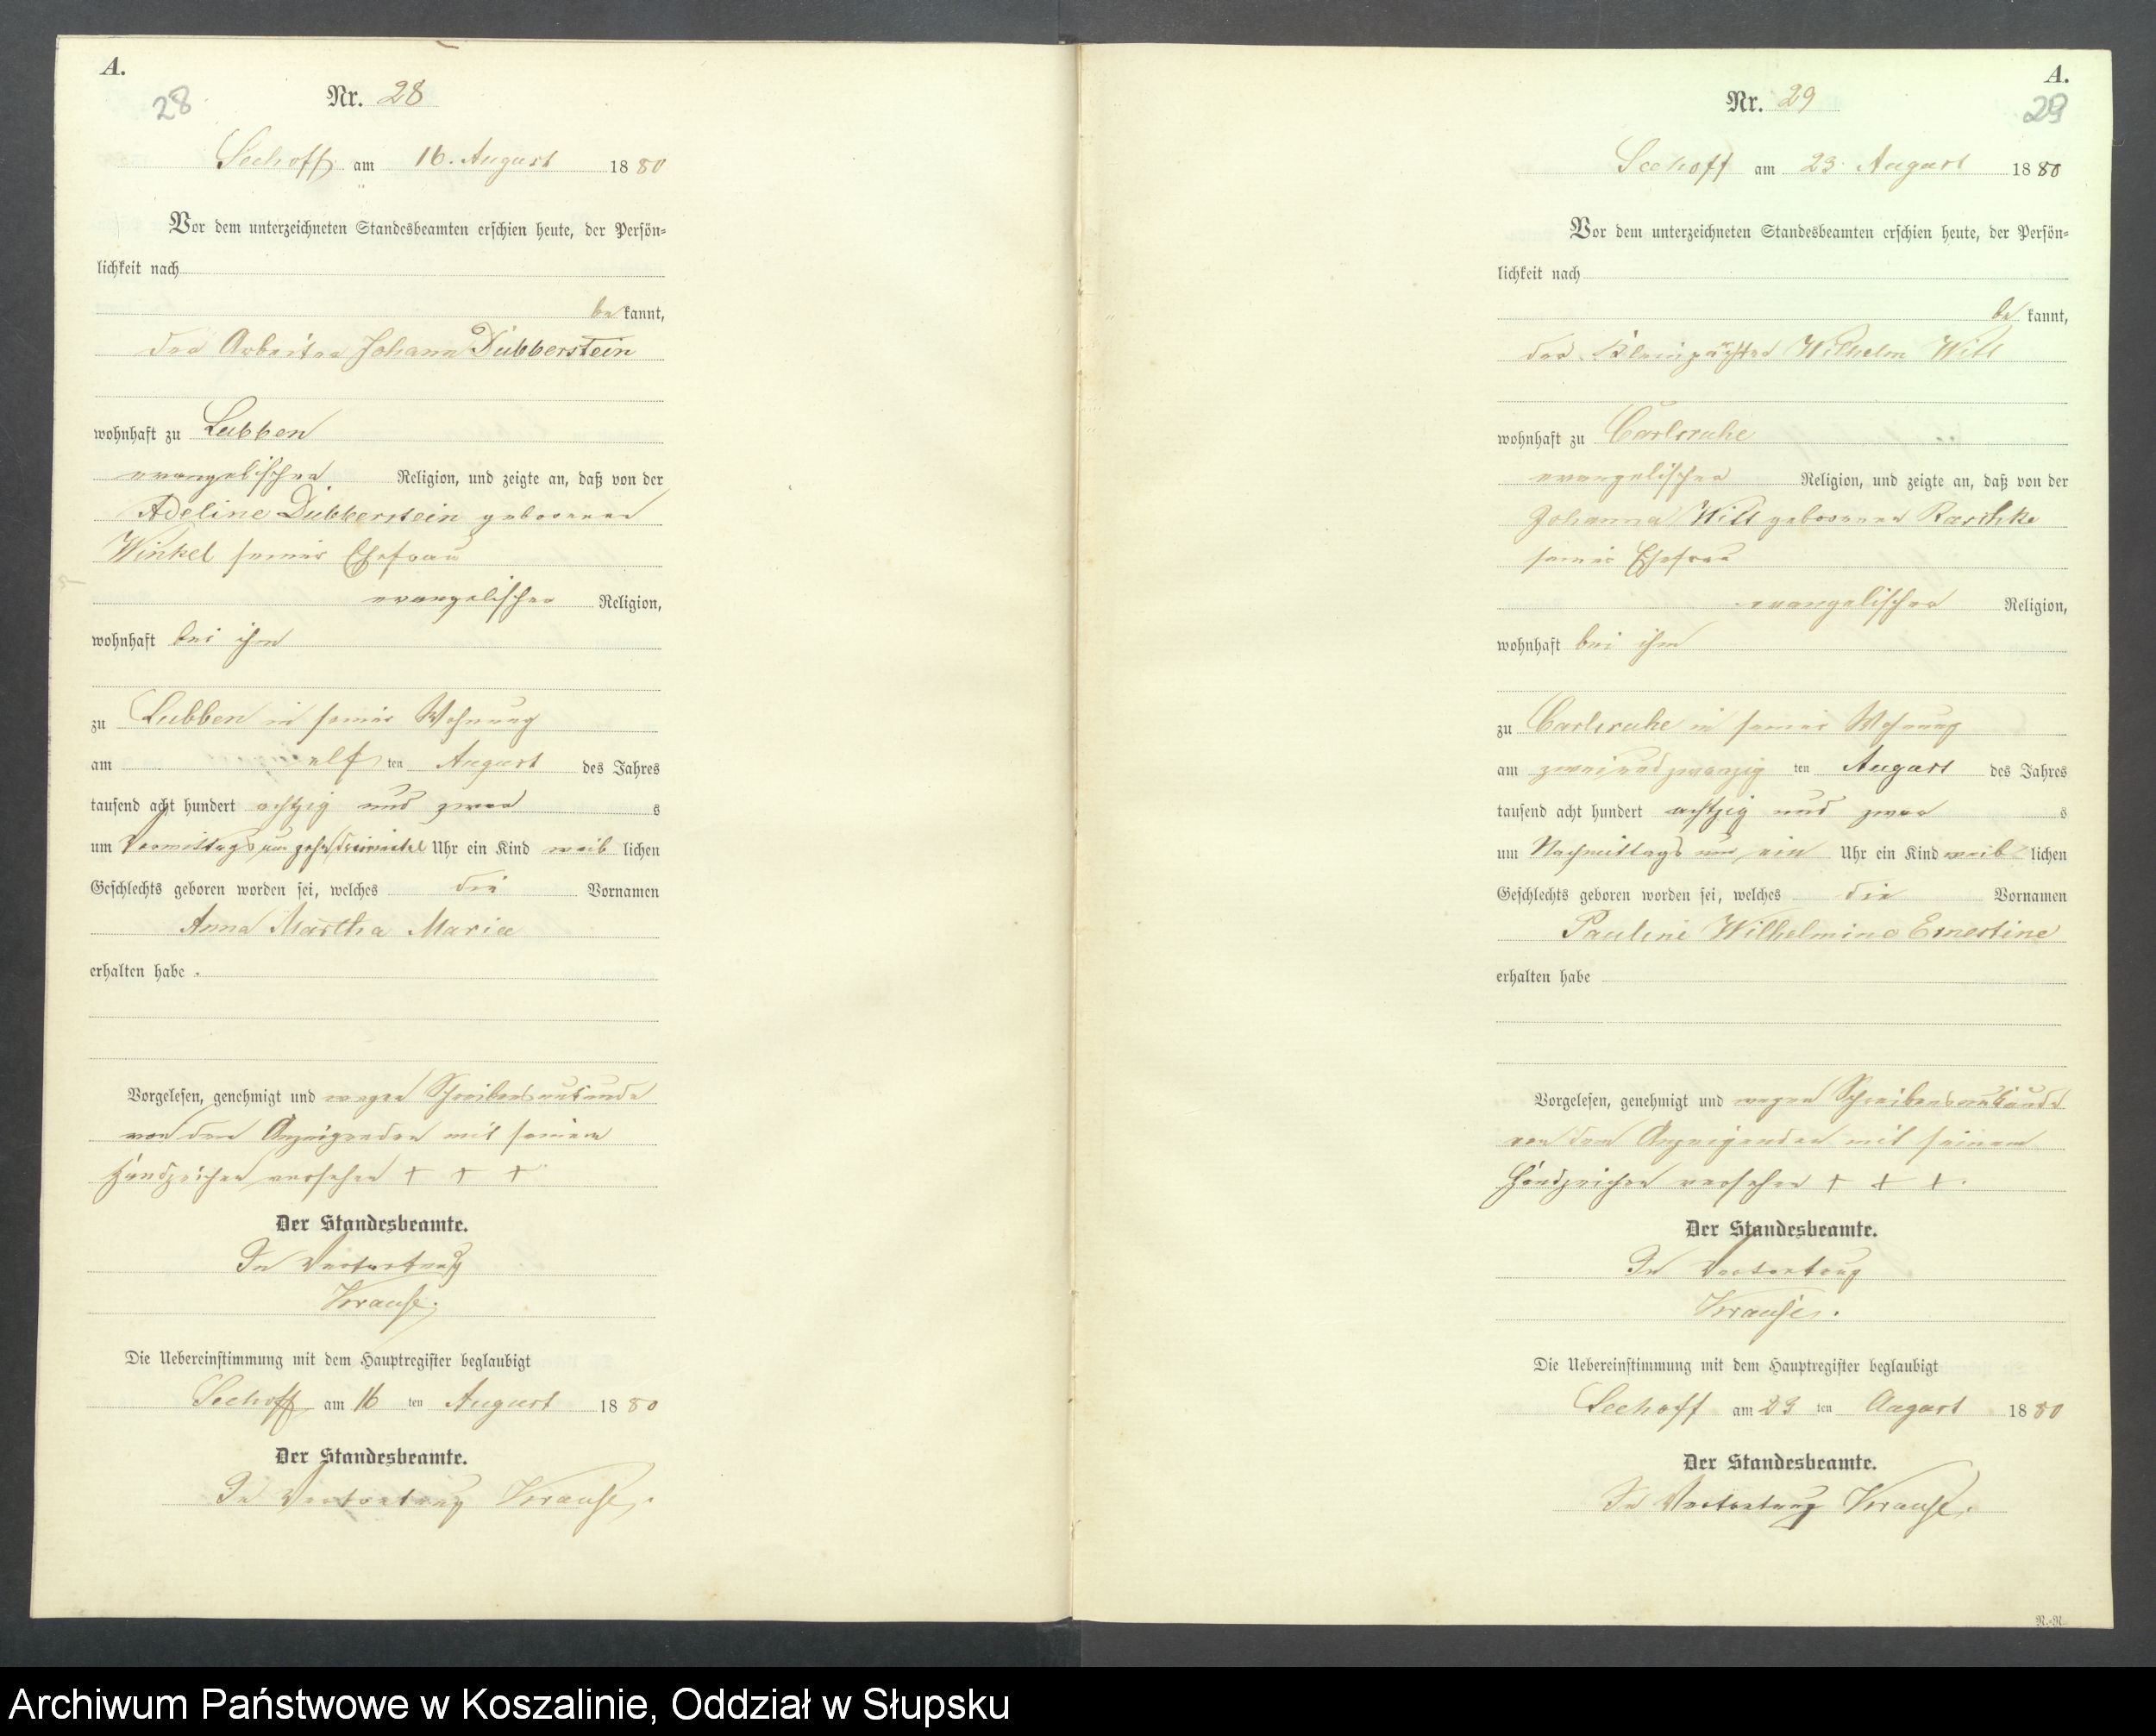 A.
28
Nr. 28
Seehoff am 16. August 1880
Vor dem unterzeichneten Standesbeamten erschien heute, der Persön-
lichkeit nach
be kannt,
der Arbeiter Johann Dubberstein
wohnhaft zu Lubben
evangelischer Religion, und zeigte an, daß von der
Adeline Dubberstein geborenen
Winkel seiner Ehefrau
evangelischer Religion,
wohnhaft bei ihm
zu Lubben in seiner Wohnung
am elf ten August des Jahres
tausend acht hundert achtzig und zwar s
um Vormittags um zehn dreiviertel Uhr ein Kind weib lichen
Geschlechts geboren worden sei, welches die Vornamen
Anna Martha Marie
erhalten habe .
Vorgelesen, genehmigt und wegen Schreibensunkunde
von dem Anzeigenden mit seinem
Handzeichen versehen + + +
Der Standesbeamte.
In Vertretung
Krause.
Die Uebereinstimmung mit dem Hauptregister beglaubigt
Seehoff am 16 ten August 1880
Der Standesbeamte.
In Vertretung Krause.
A.
29
Nr. 29
Seehoff am 23. August 1880
Vor dem unterzeichneten Standesbeamten erschien heute, der Persön-
lichkeit nach
be kannt,
der Kleinpächter Wilhelm Witt
wohnhaft zu Carlsruhe
evangelischer Religion, und zeigte an, daß von der
Johanna Witt geborenen Raschke
seiner Ehefrau
evangelischer Religion,
wohnhaft bei ihm
zu Carlsruhe in seiner Wohnung
am zweiundzwanzig ten August des Jahres
tausend acht hundert achtzig und zwar s
um Nachmittags um ein Uhr ein Kind weib lichen
Geschlechts geboren worden sei, welches die Vornamen
Pauline Wilhelmine Ernestine
erhalten habe
Vorgelesen, genehmigt und wegen Schreibensunkunde
von dem Anzeigenden mit seinem
Handzeichen versehen + + +.
Der Standesbeamte.
In Vertretung
Krause.
Die Uebereinstimmung mit dem Hauptregister beglaubigt
Seehoff am 23 ten August 1880
Der Standesbeamte.
In Vertretung Krause.
R.-R.
Archiwum Państwowe w Koszalinie, Oddział w Słupsku